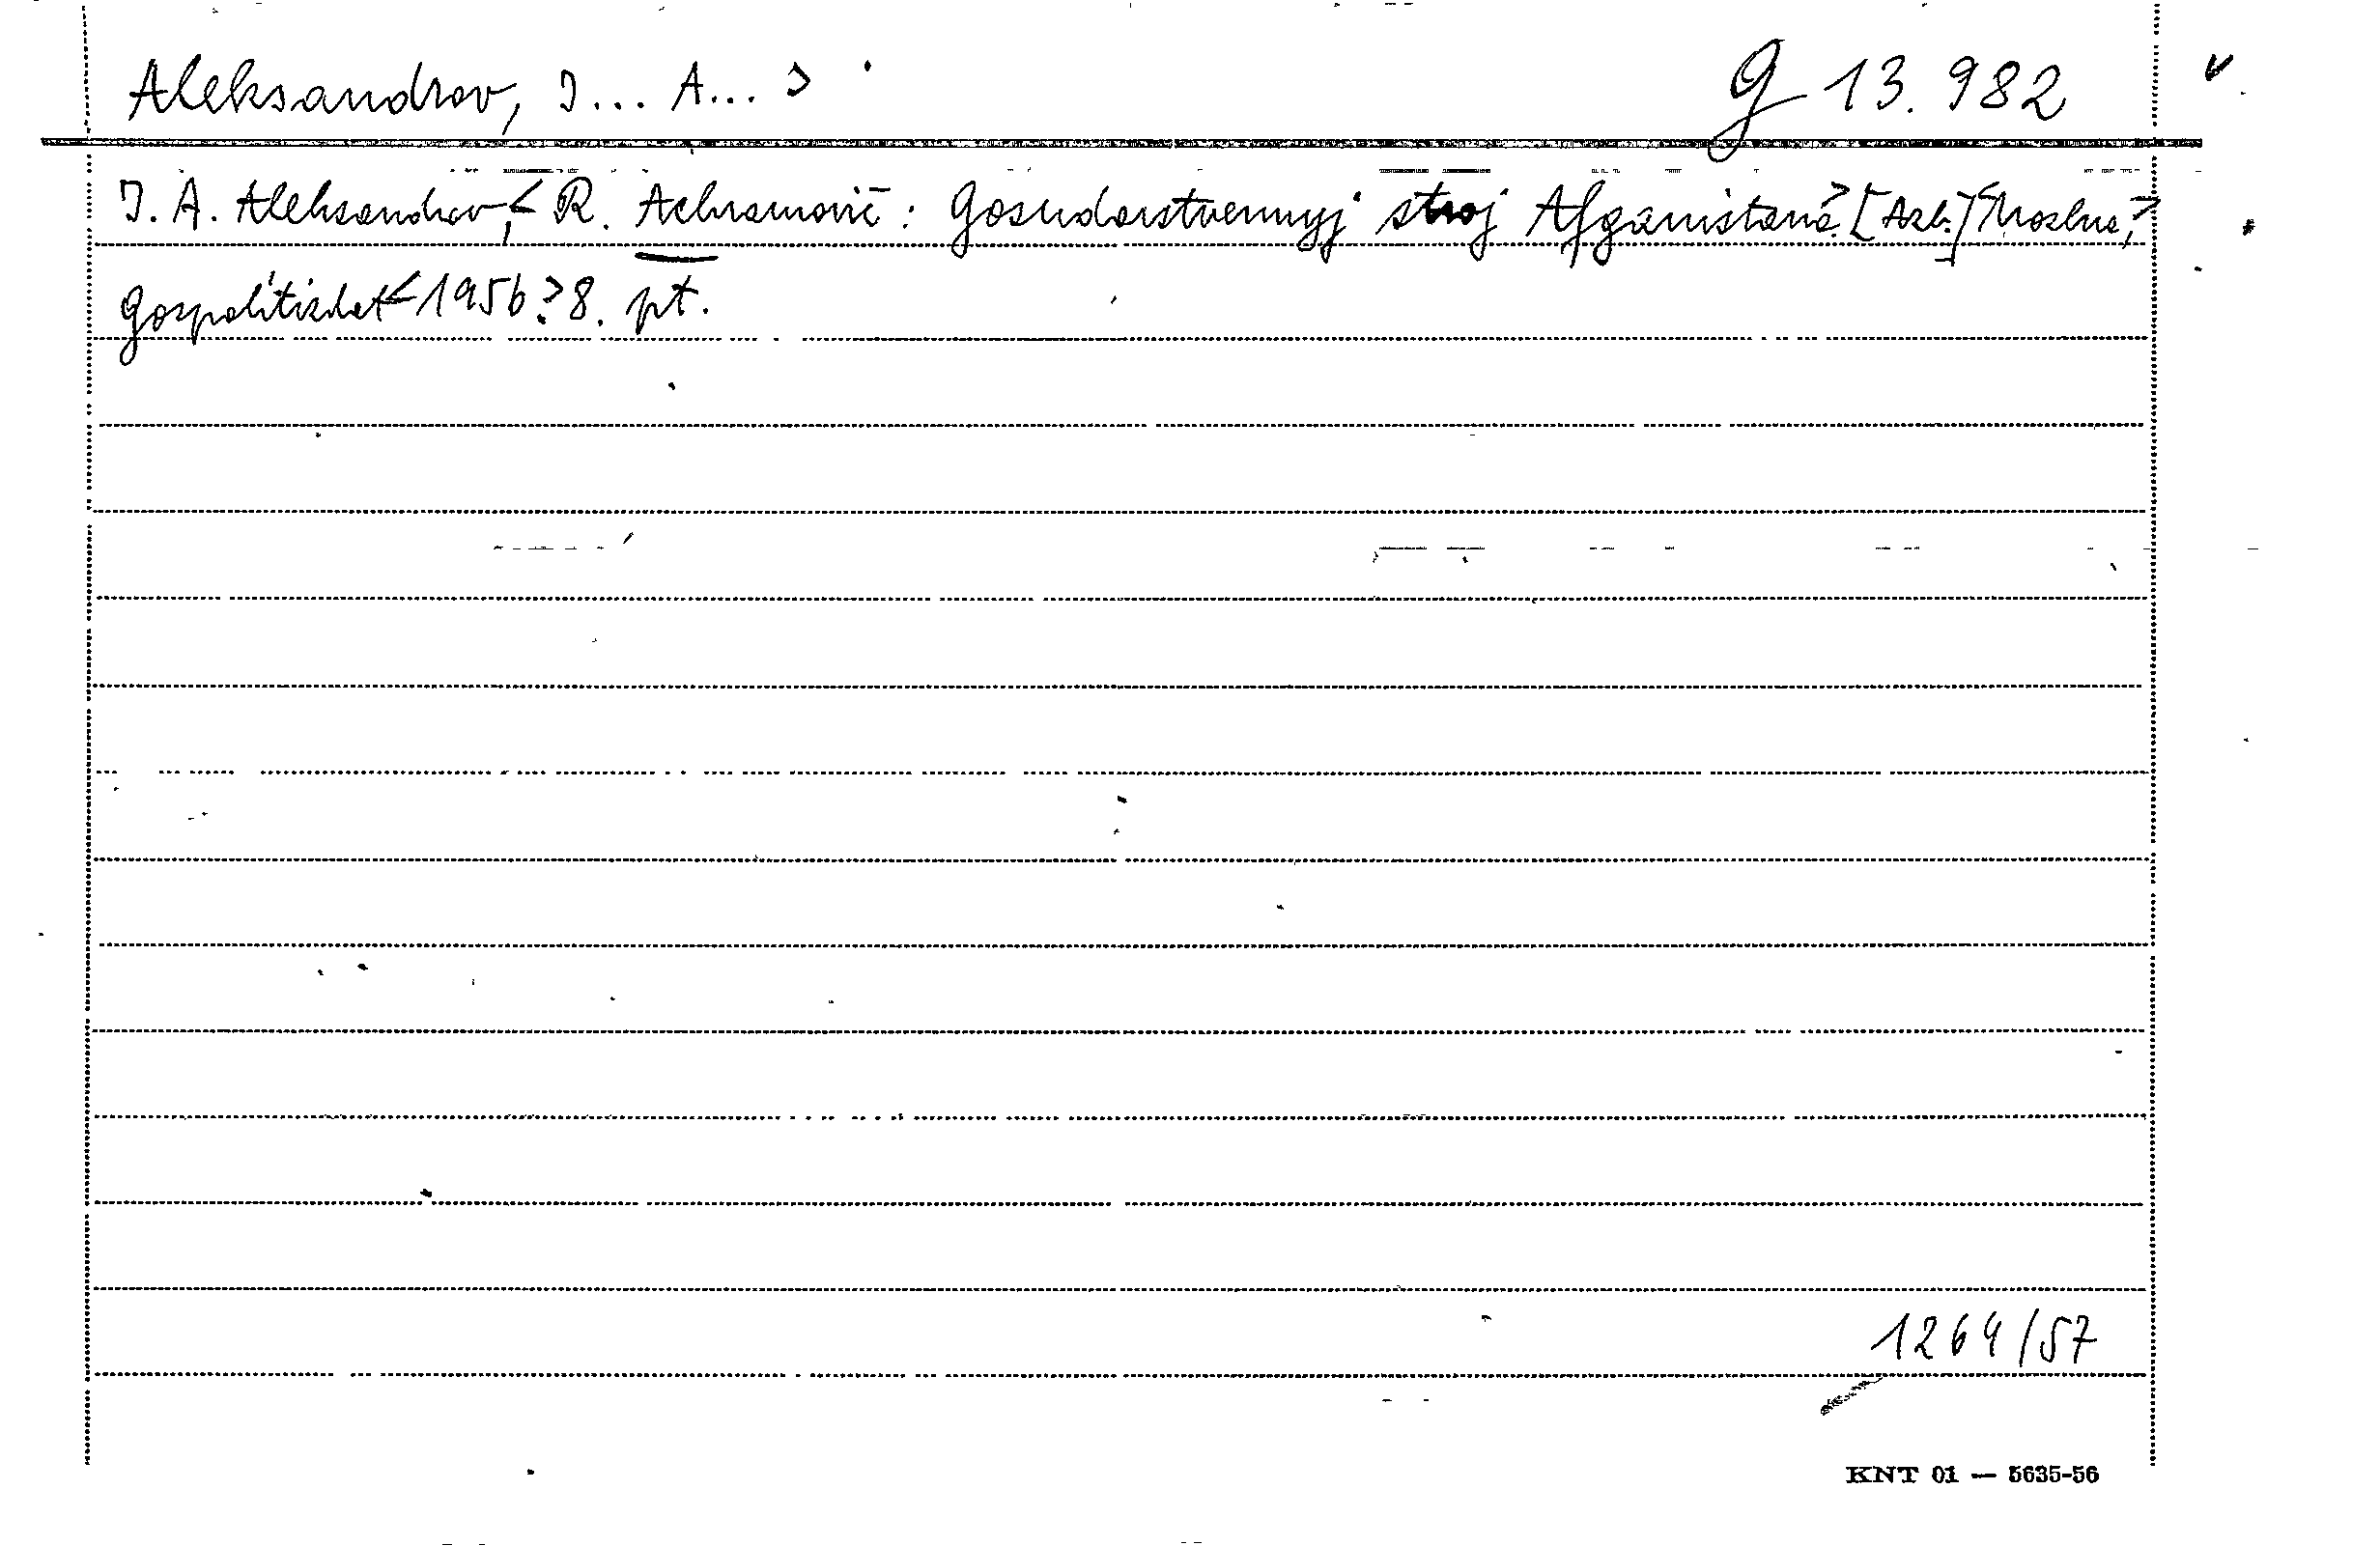 Aleksandrov, I... A... > G 13.982
I. A. Aleksandrov,< R. Achramovič: Gosudarstvennyj stroj Afganistana.> [Azb.] <Moskva,>
Gospolitizdat < 1956.> 8. pt.
1264/57
KNT 01 — 5635-56